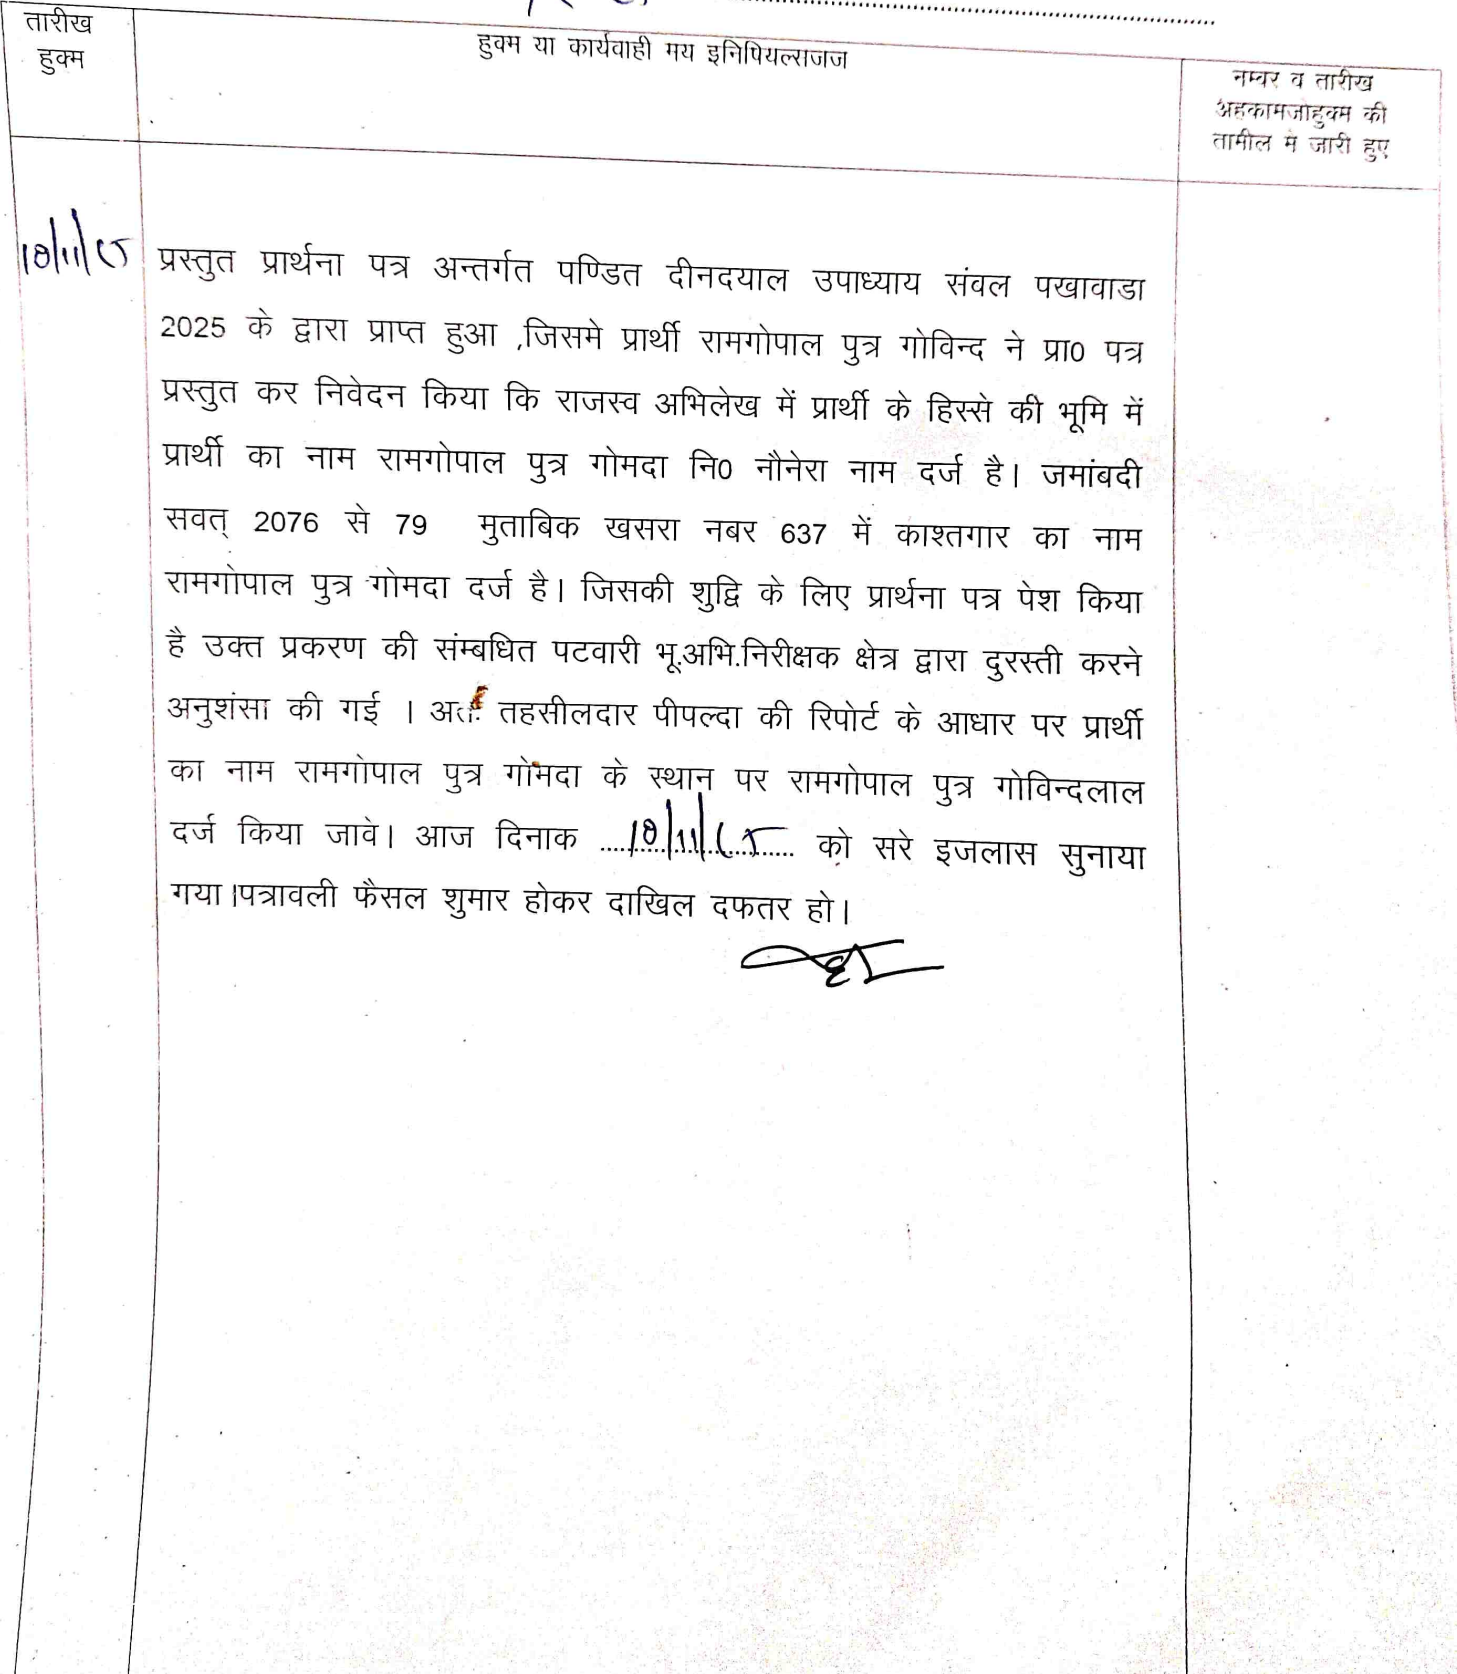 तारीख
हुक्म
हुक्म या कार्यवाही मय इनिपियल्सजज
नम्वर व तारीख
अहकामजोहुक्म की
तामील मे जारी हुए
प्रस्तुत प्रार्थना पत्र अन्तर्गत पण्डित दीनदयाल उपाध्याय संवल पखावाडा
2025 के द्वारा प्राप्त हुआ ,जिसमे प्रार्थी रामगोपाल पुत्र गोविन्द ने प्रा0 पत्र
प्रस्तुत कर निवेदन किया कि राजस्व अभिलेख में प्रार्थी के हिस्से की भूमि में
प्रार्थी का नाम रामगोपाल पुत्र गोमदा नि0 नौनेरा नाम दर्ज है। जमांबदी
सवत् 2076 से 79 मुताबिक खसरा नबर 637 में काश्तगार का नाम
रामगोपाल पुत्र गोमदा दर्ज है। जिसकी शुद्वि के लिए प्रार्थना पत्र पेश किया
है उक्त प्रकरण की संम्बधित पटवारी भू.अभि.निरीक्षक क्षेत्र द्वारा दुरस्ती करने
अनुशंसा की गई । अतः तहसीलदार पीपल्दा की रिपोर्ट के आधार पर प्रार्थी
का नाम रामगोपाल पुत्र गोमदा के स्थान पर रामगोपाल पुत्र गोविन्दलाल
दर्ज किया जावे। आज दिनाक .................... को सरे इजलास सुनाया
गया।पत्रावली फैसल शुमार होकर दाखिल दफतर हो।